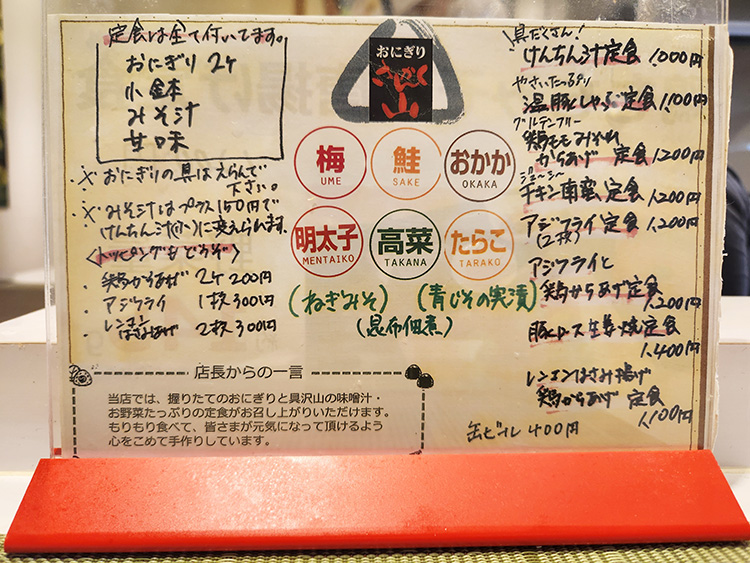 定食は全て付いてます。
おにぎり 2ケ
小鉢
みそ汁
甘味
※ おにぎりの具はえらんで
下さい。
※ みそ汁はプラス150円で
けんちん汁(小)に変えられます。
<トッピングもどうぞ>
・ 鶏からあげ 2ケ 200円
・ アジフライ 1枚 300円
・ レンコンはさみあげ 2枚 300円
おにぎり
山
梅
UME
鮭
SAKE
おかか
OKAKA
明太子
MENTAIKO
高菜
TAKANA
たらこ
TARAKO
(ねぎみそ) (青じその実漬)
(昆布佃煮)
店長からの一言
当店では、握りたてのおにぎりと具沢山の味噌汁・
お野菜たっぷりの定食がお召し上がりいただけます。
もりもり食べて、皆さまが元気になって頂けるよう
心をこめて手作りしています。
具だくさん!
けんちん汁定食 1,000円
やさいたっぷり
温豚しゃぶ定食 1,100円
グルテンフリー
鶏モモみぞれ
からあげ 定食 1,200円
ジューシー
チキン南蛮定食 1,200円
アジフライ定食 1,200円
(2枚)
アジフライと
鶏からあげ定食
1,200円
豚ロース生姜焼定食
1,400円
レンコンはさみ揚げ
鶏からあげ 定食
1,100円
缶ビール 400円